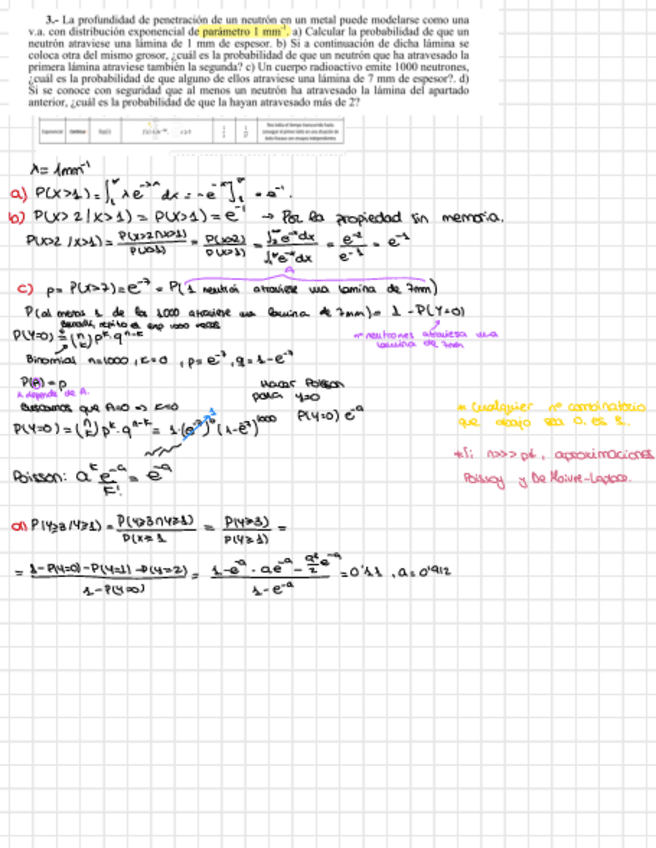 3.- La profundidad de penetración de un neutrón en un metal puede modelarse como una
v.a. con distribución exponencial de parámetro 1 mm⁻¹. a) Calcular la probabilidad de que un
neutrón atraviese una lámina de 1 mm de espesor. b) Si a continuación de dicha lámina se
coloca otra del mismo grosor, ¿cuál es la probabilidad de que un neutrón que ha atravesado la
primera lámina atraviese también la segunda? c) Un cuerpo radioactivo emite 1000 neutrones,
¿cuál es la probabilidad de que alguno de ellos atraviese una lámina de 7 mm de espesor?. d)
Si se conoce con seguridad que al menos un neutrón ha atravesado la lámina del apartado
anterior, ¿cuál es la probabilidad de que la hayan atravesado más de 2?
Exponencial Continua
λ = 1mm⁻¹
a) P(X>1) = ∫₁^∞ λe^-λx dx = -e^-x]₁^∞ = e⁻¹.
b) P(X>2/X>1) = P(X>1) = e⁻¹ → Por la propiedad sin memoria.
P(X>2/X>1) = P(X>2∩X>1)/P(X>1) = P(X>2)/P(X>1) = ∫₂^∞ e^-x dx/∫₁^∞ e^-x dx = e⁻²/e⁻¹ = e⁻¹
A
c) p = P(X>7) = e⁻⁷ = P(1 neutrón atraviese una lámina de 7mm)
P(al menos 1 de los 1000 atraviese una lámina de 7mm) = 1 - P(Y=0)
Bernoulli, repito el exp 1000 veces
P(Y=0) = (n k) p^k · q^n-k
nº neutrones atraviesa una
lámina de 7mm
Binomial n=1000, k=0, p=e⁻⁷, q=1-e⁻⁷
P(A) = p
λ depende de A.
Hacer Poisson
para Y=0
P(Y=0) e^-a
Buscamos que A=0 => k=0
P(Y=0) = (n k) p^k · q^n-k = 1·(e⁻⁷)⁰ (1-e⁻⁷)^1000
1
* Cualquier nº combinatorio
que abajo sea 0, es 1.
*Si n>>> p↓, aproximaciones
Poisson y De Moivre-Laplace.
Poisson: a^k e^-a/k! = e^-a
d) P(Y≥3/Y≥1) = P(Y≥3∩Y≥1)/P(X≥1 = P(Y≥3)/P(Y≥1) =
= 1-P(Y=0)-P(Y=1)-P(Y=2)/1-P(Y=0) = 1-e^-a - ae^-a - a²/2 e^-a/1-e^-a = 0'11, a=0'912